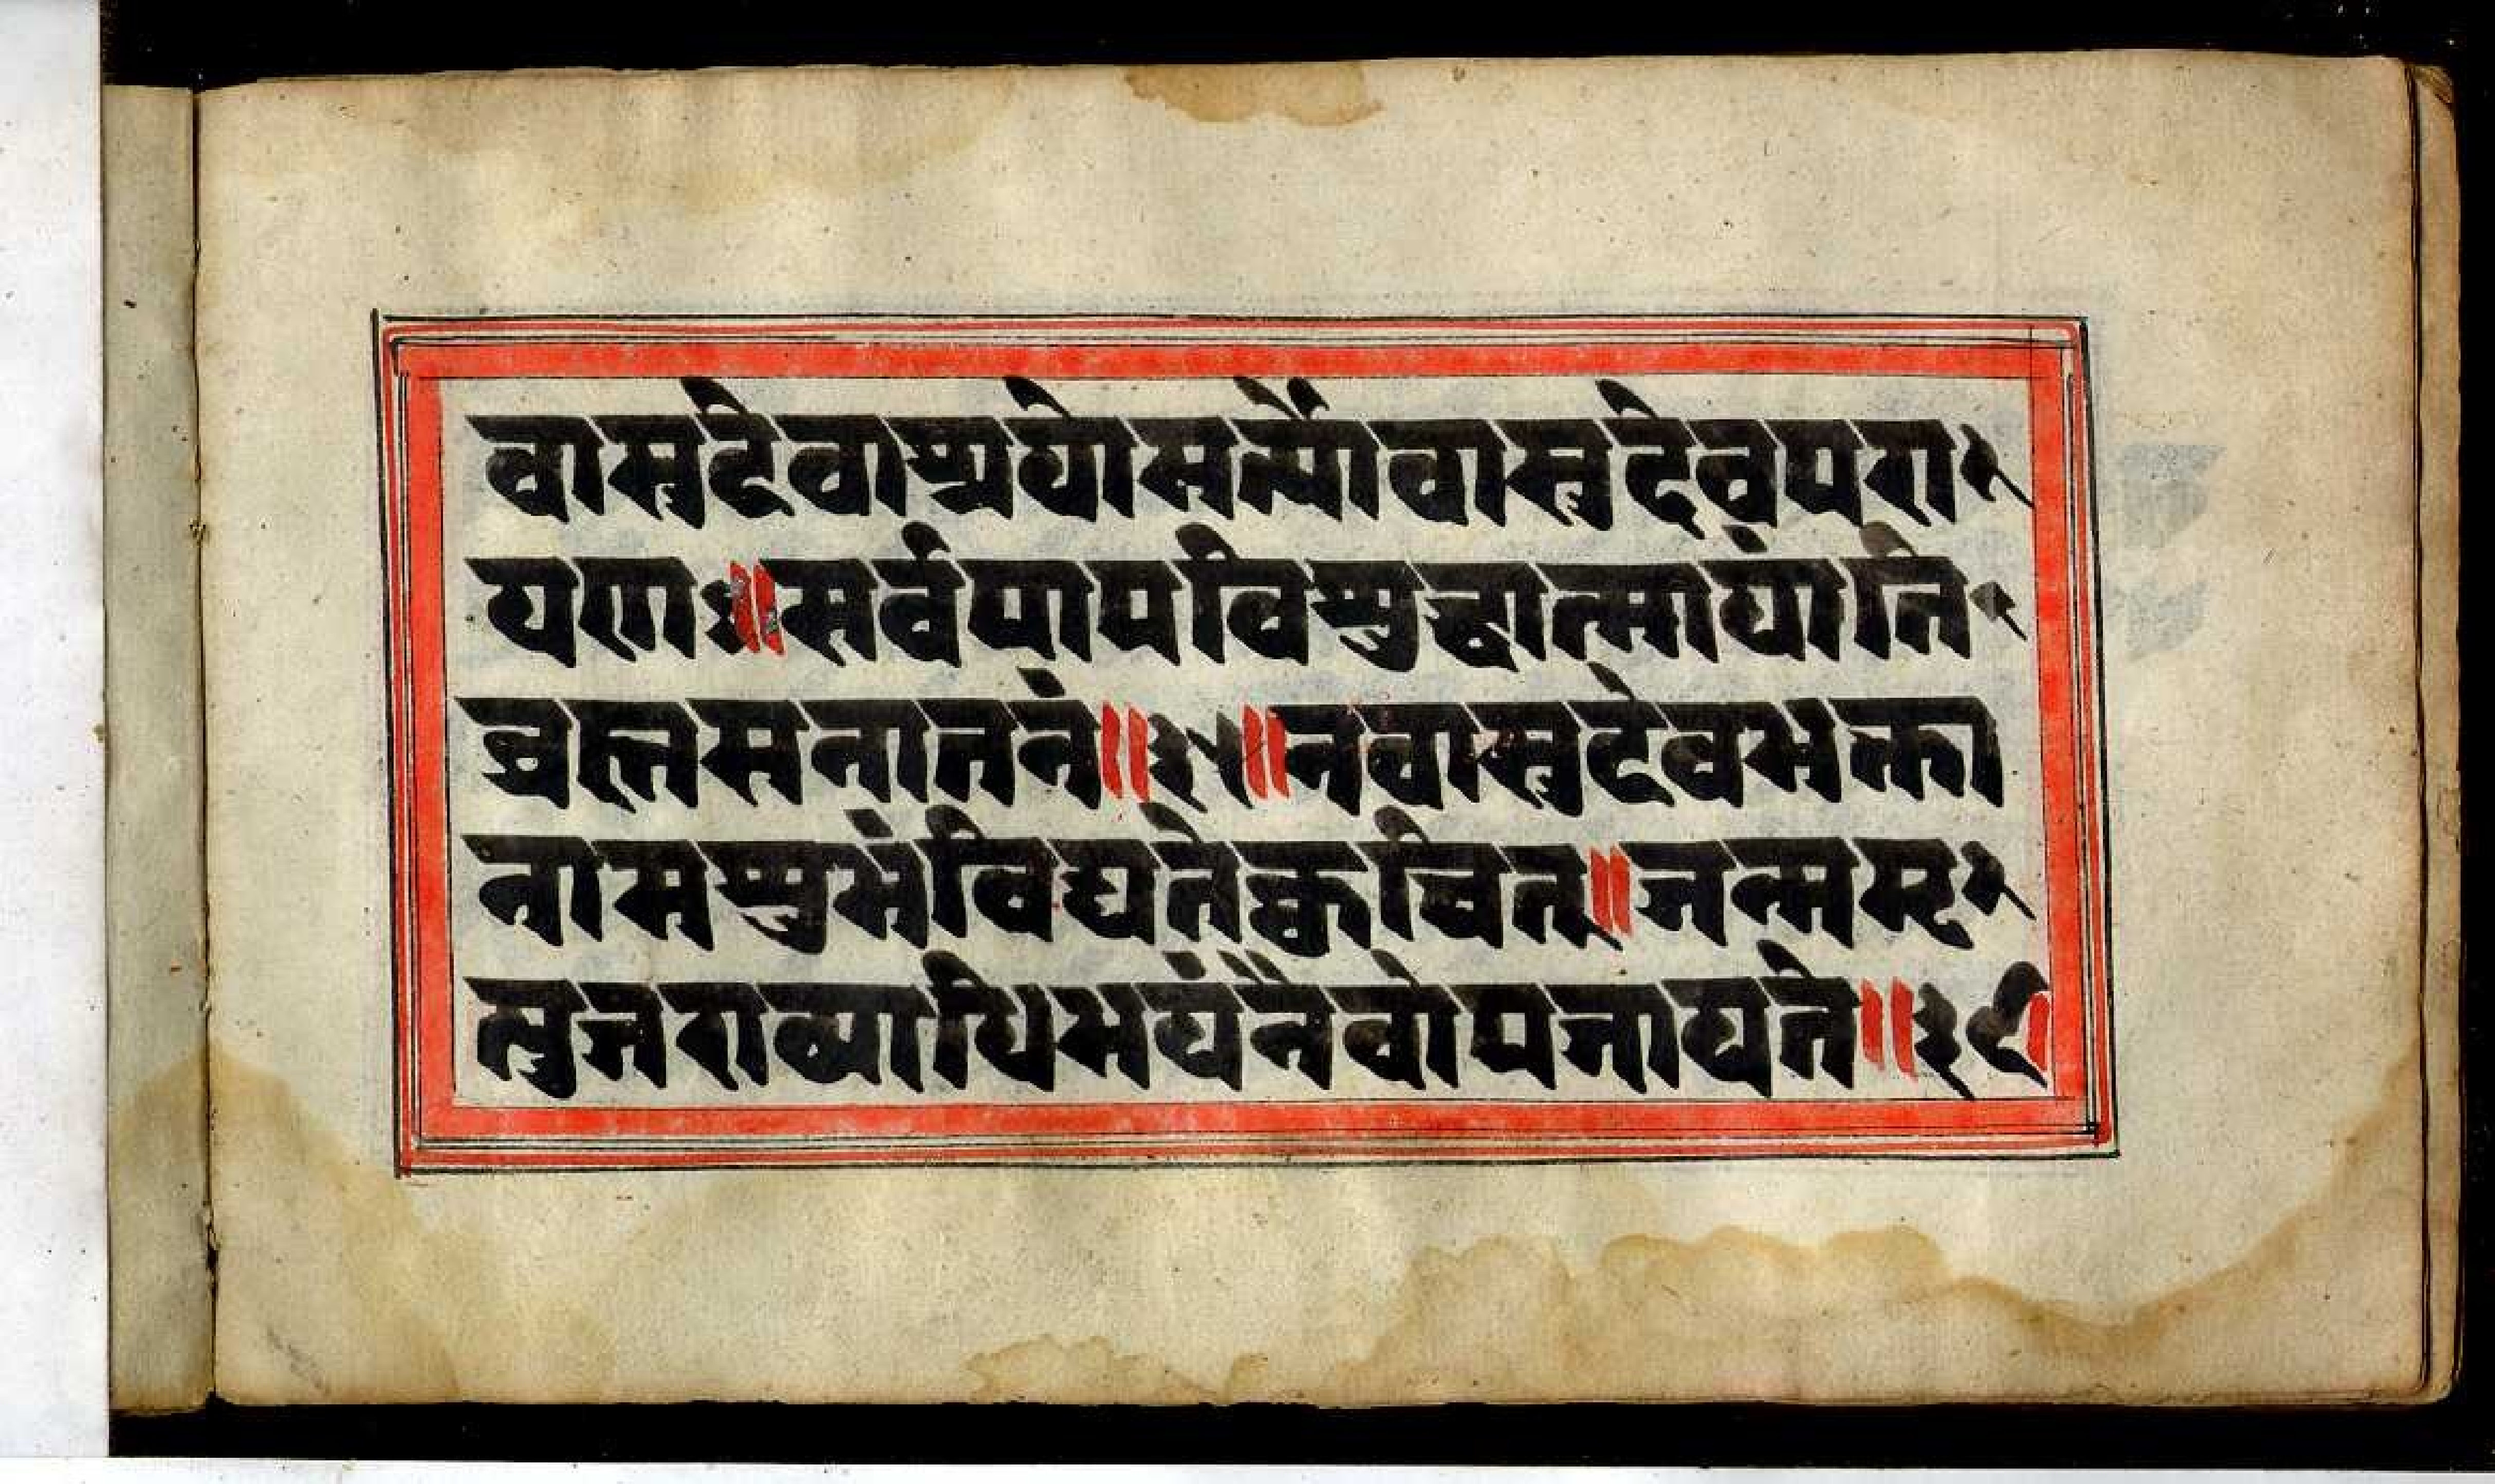 वासुदेवाश्रयोमर्त्योवासुदेवपरा
यणः॥सर्वपापविशुद्धात्मायाति
ब्रह्मसनातनं॥३१॥नवासुदेवभक्ता
नामशुभंविद्यतेक्वचित्॥जन्ममृ
त्युजराव्याधिभयंनैवोपजायते॥३२॥